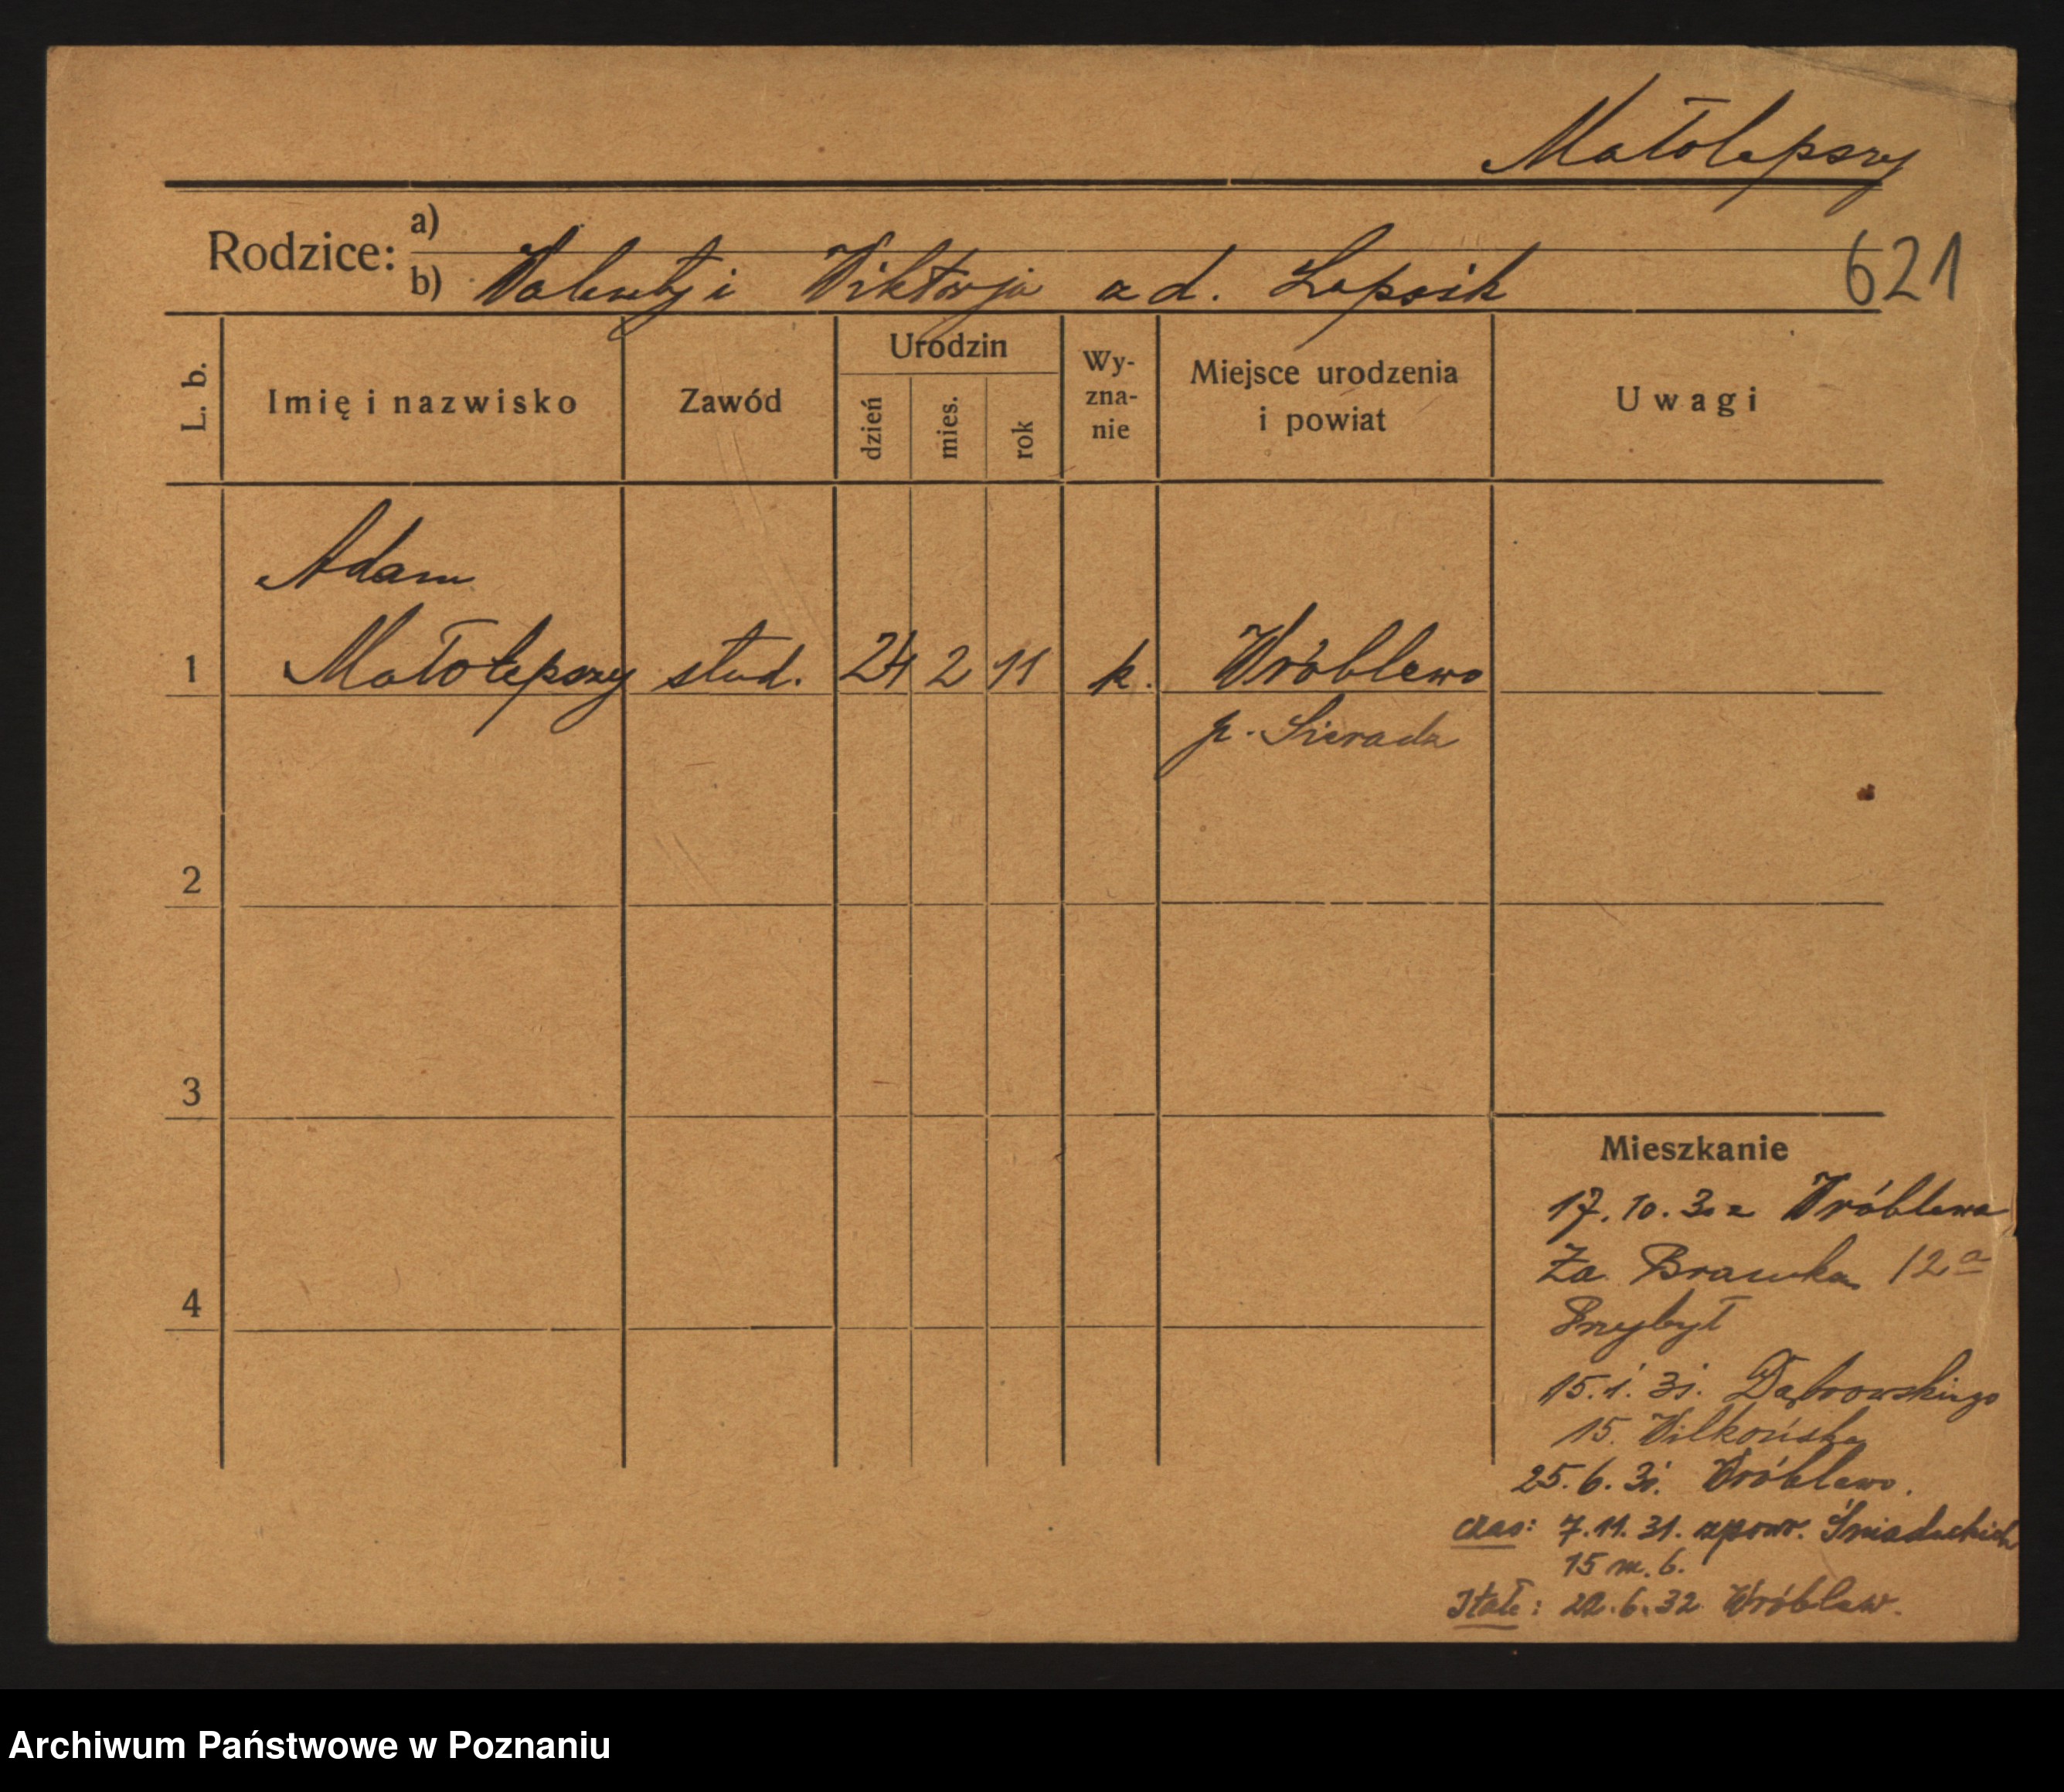 Małolepszy
Rodzice: a)
b) Walenty i Wiktorja z d. Łapsik
621
L. b.
Imię i nazwisko
Zawód
Urodzin
dzień
mies.
rok
Wy-
zna-
nie
Miejsce urodzenia
i powiat
Uwagi
Adam
1 Małolepszy stud. 24 2 11 k. Wróblewo
p. Sieradz
2
3
4
Mieszkanie
17.10.30 z Wróblewa
Za Bramką 12a
Przybył
15.1.31. Dąbrowskiego
15. Wilkońska
25.6.31. Wróblewo.
czas: 7.11.31. zpow. Śniadeckich
15 m. 6.
Stałe: 22.6.32 Wróblew.
Archiwum Państwowe w Poznaniu